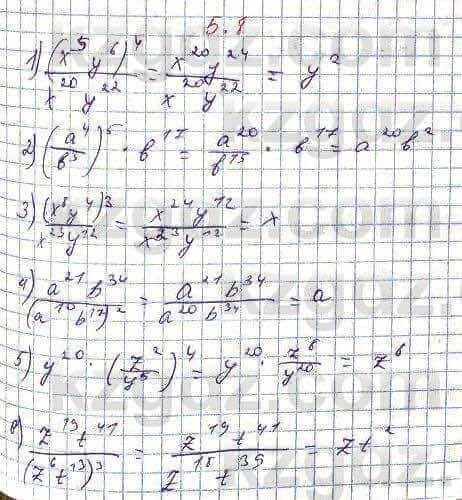 5.8
1) (x⁵y⁶)⁴ / x²⁰y²² = x²⁰y²⁴ / x²⁰y²² = y²
2) (a⁴/b³)⁵ · b¹⁷ = a²⁰/b¹⁵ · b¹⁷ = a²⁰b²
3) (x⁸y⁴)³ / x²³y¹² = x²⁴y¹² / x²³y¹² = x
4) a²¹b³⁴ / (a¹⁰b¹⁷)² = a²¹b³⁴ / a²⁰b³⁴ = a
5) y²⁰ · (z²/y⁵)⁴ = y²⁰ · z⁸/y²⁰ = z⁸
6) z¹⁹t⁴¹ / (z⁶t¹³)³ = z¹⁹t⁴¹ / z¹⁸t³⁹ = zt²